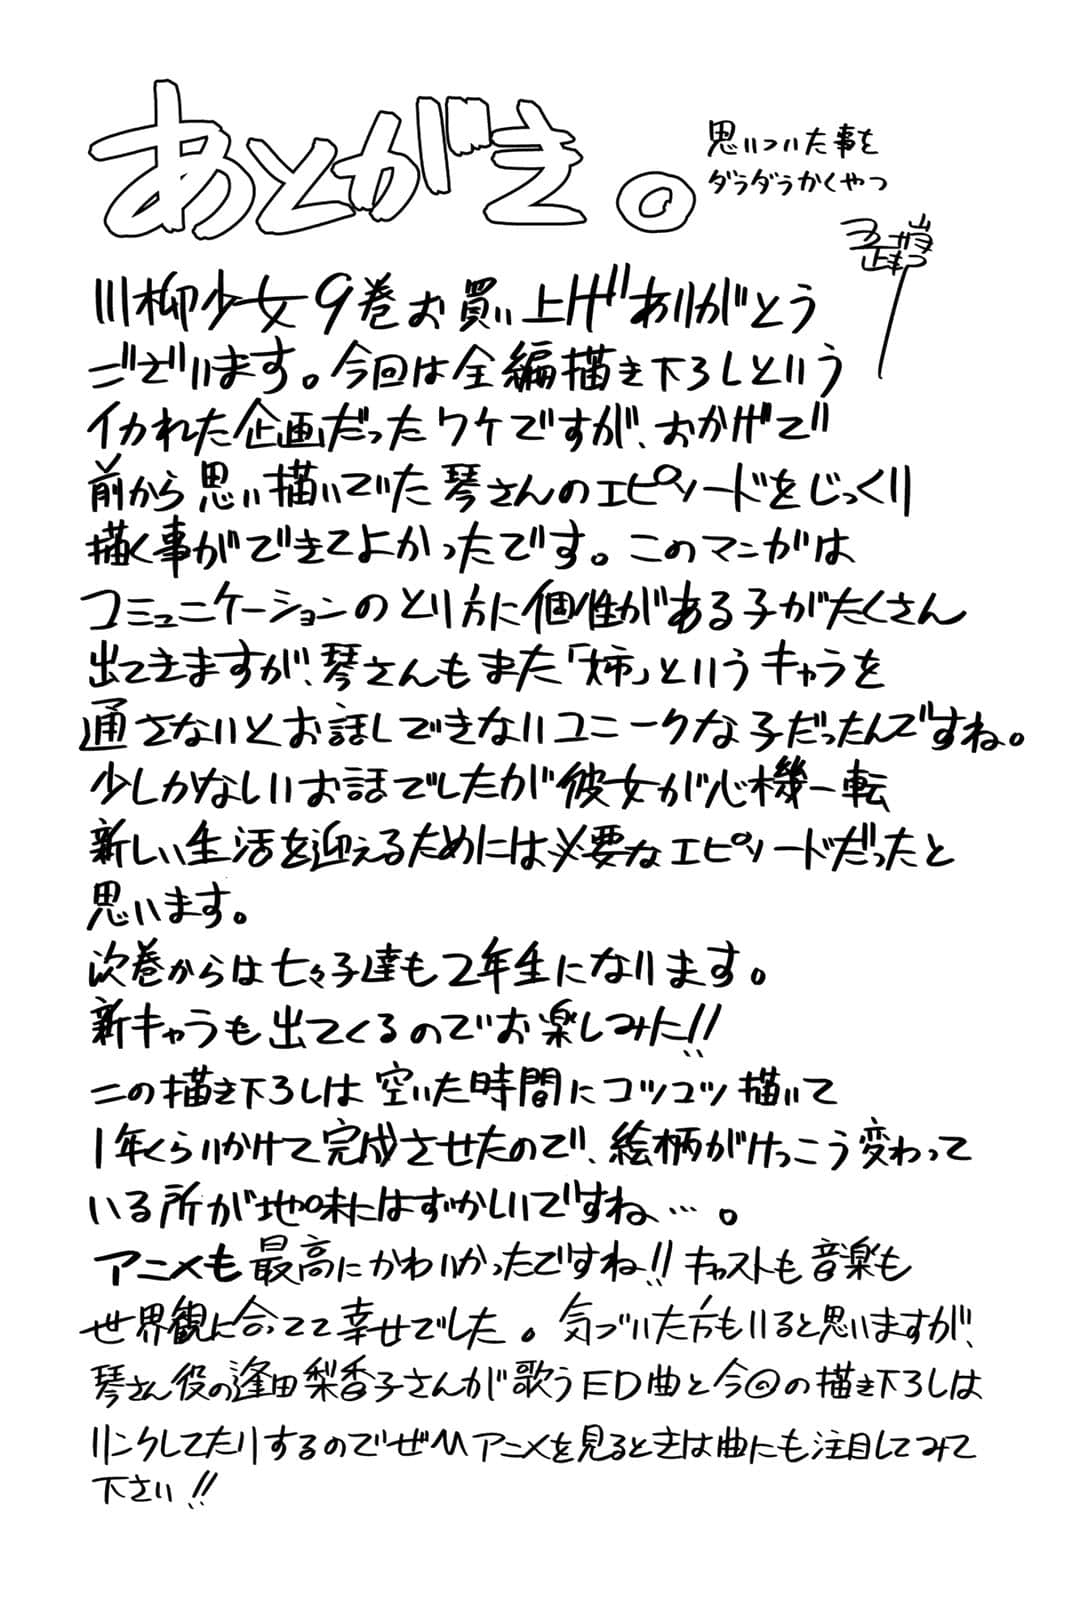 あとがき。
思いついた事を
ダラダラかくやつ
川柳少女9巻お買い上げありがとう
ございます。今回は全編描き下ろしという
イカれた企画だったワケですが、おかげで
前から思い描いていた琴さんのエピソードをじっくり
描く事ができてよかったです。このマンガは
コミュニケーションのとり方に個性がある子がたくさん
出てきますが、琴さんもまた「姉」というキャラを
通さないとお話しできないユニークな子だったんですね。
少しかなしいお話でしたが彼女が心機一転
新しい生活を迎えるためには必要なエピソードだったと
思います。
次巻からは七々子達も2年生になります。
新キャラも出てくるのでお楽しみに!!
この描き下ろしは空いた時間にコツコツ描いて
1年くらいかけて完成させたので、絵柄がけっこう変わって
いる所が地味にはずかしいですね…。
アニメも最高にかわいかったですね!!キャストも音楽も
世界観に合ってて幸せでした。気づいた方もいると思いますが、
琴さん役の逢田梨香子さんが歌うED曲と今回の描き下ろしは
リンクしてたりするのでぜひアニメを見るときは曲にも注目してみて
下さい!!